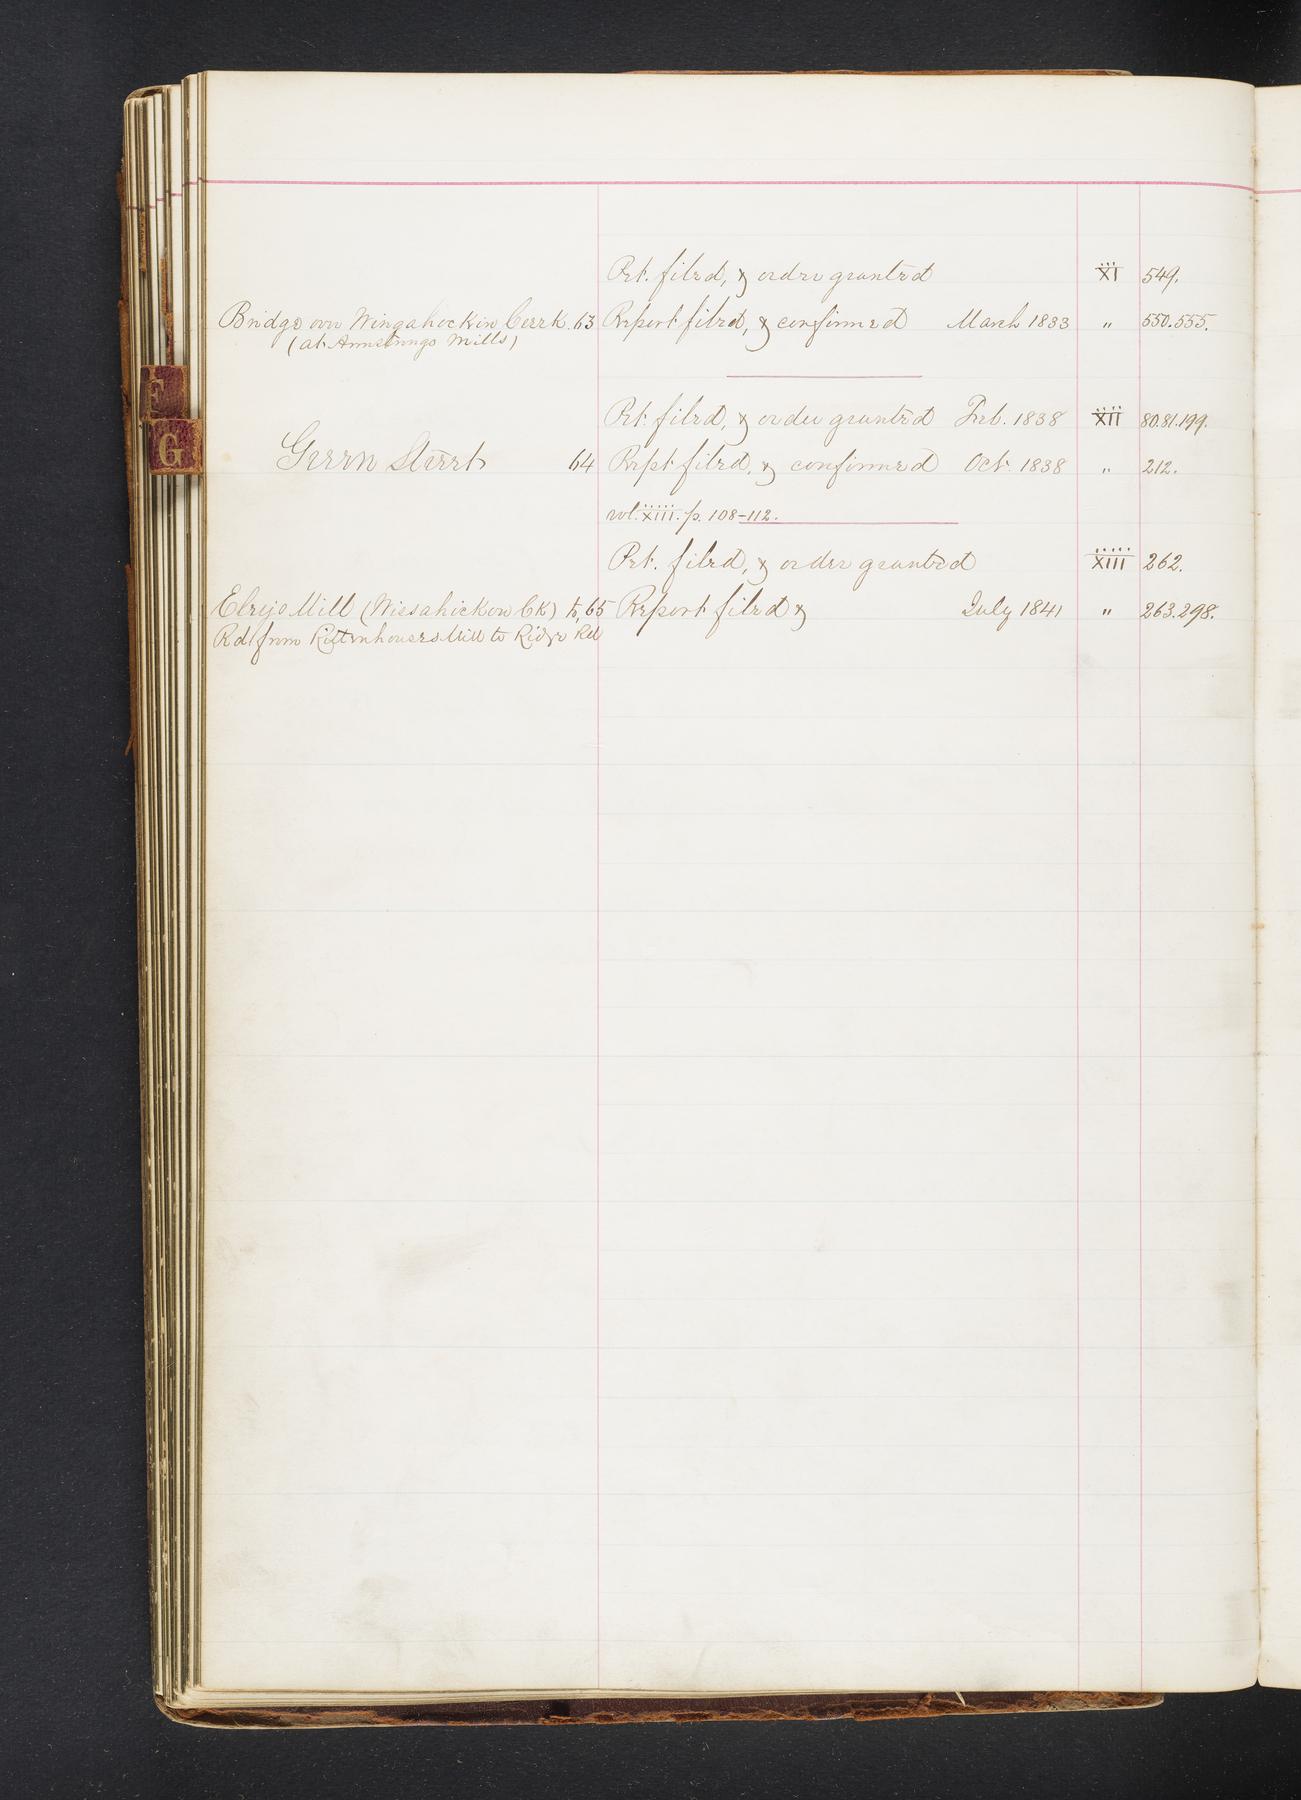 Pet. filed, & order granted XI 549.
Bridge over Wingahockin Creek. 63 Report filed, & confirmed March 1833 " 550.555.
(at Armstrongs Mills)
Pet. filed, & order granted Feb. 1838 XII 80.81.199.
Green Street 64 Rept filed, & confirmed Oct. 1838 " 212.
vol. XIII. p. 108-112.
Pet. filed, & order granted XIII 262.
Mill (Wissahickon Ck) to, 65 Report filed & July 1841 " 263.298.
Rd from Rittenhouses Mill to Ridge Rd
F
G